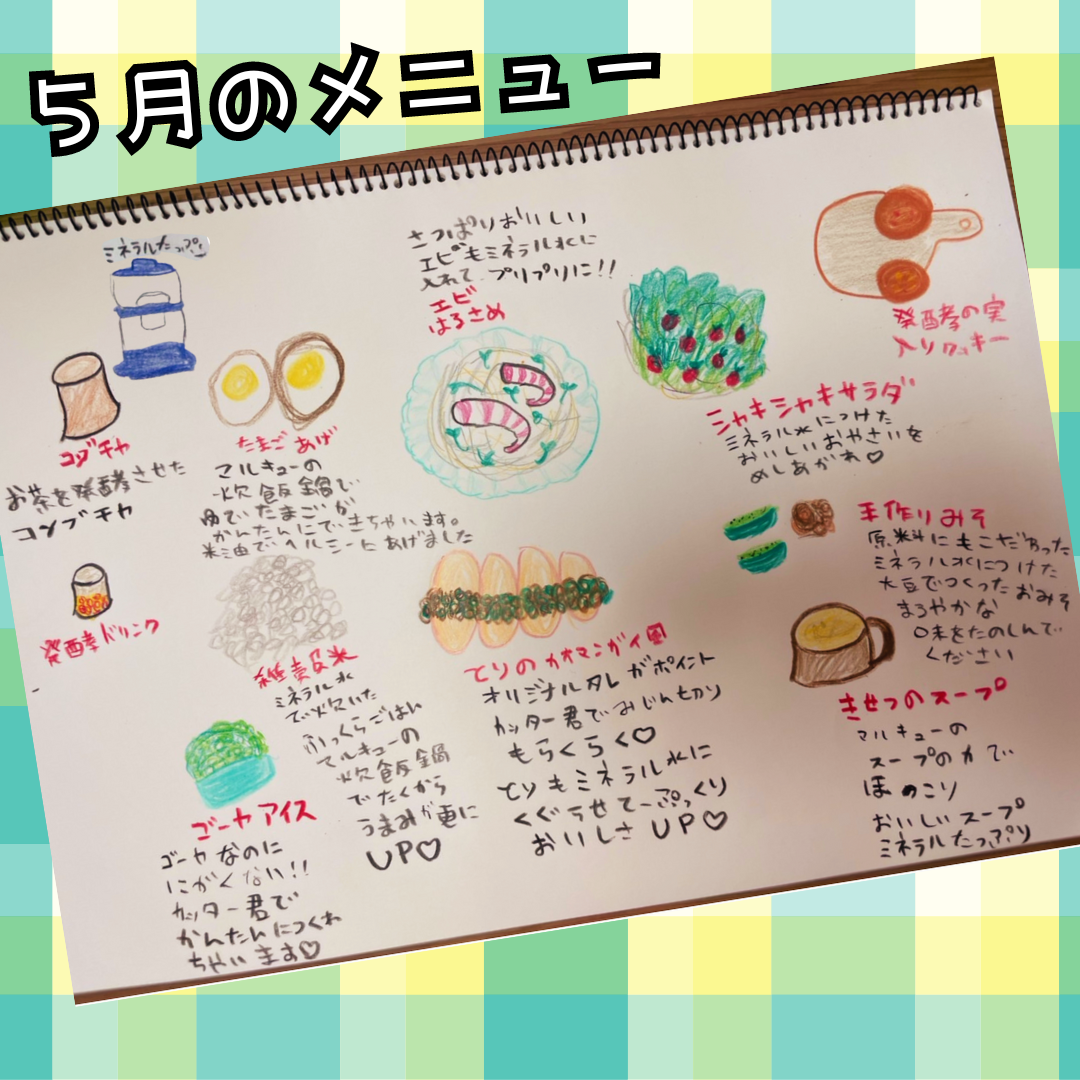 5月のメニュー
ミネラルたっぷり
コブチャ
お茶を発酵させた
コンブチャ
発酵ドリンク
たまごあげ
マルキューの
炊飯鍋で
ゆでたまごが
かんたんにできちゃいます。
米油でヘルシーにあげました
さっぱりおいしい
エビもミネラル水に
入れて、プリプリに!!
エビ
はるさめ
シャキシャキサラダ
ミネラル水につけた
おいしいおやさいを
めしあがれ♡
発酵の実
入りクッキー
雑穀米
ミネラル水
で炊いた
ふっくらごはん
マルキューの
炊飯鍋
でたくから
うまみが更に
UP♡
ゴーヤアイス
ゴーヤなのに
にがくない!!
カッター君で
かんたんにつくれ
ちゃいます♡
とりのカオマンガイ風
オリジナルタレがポイント
カッター君でみじん切り
もらくらく♡
とりもミネラル水に
くぐらせてぷっくり
おいしさUP♡
手作りみそ
原料にもこだわった
ミネラル水につけた
大豆でつくったおみそ
まろやかな
味をたのしんで
ください
きせつのスープ
マルキューの
スープのカで
ほっこり
おいしいスープ
ミネラルたっぷり